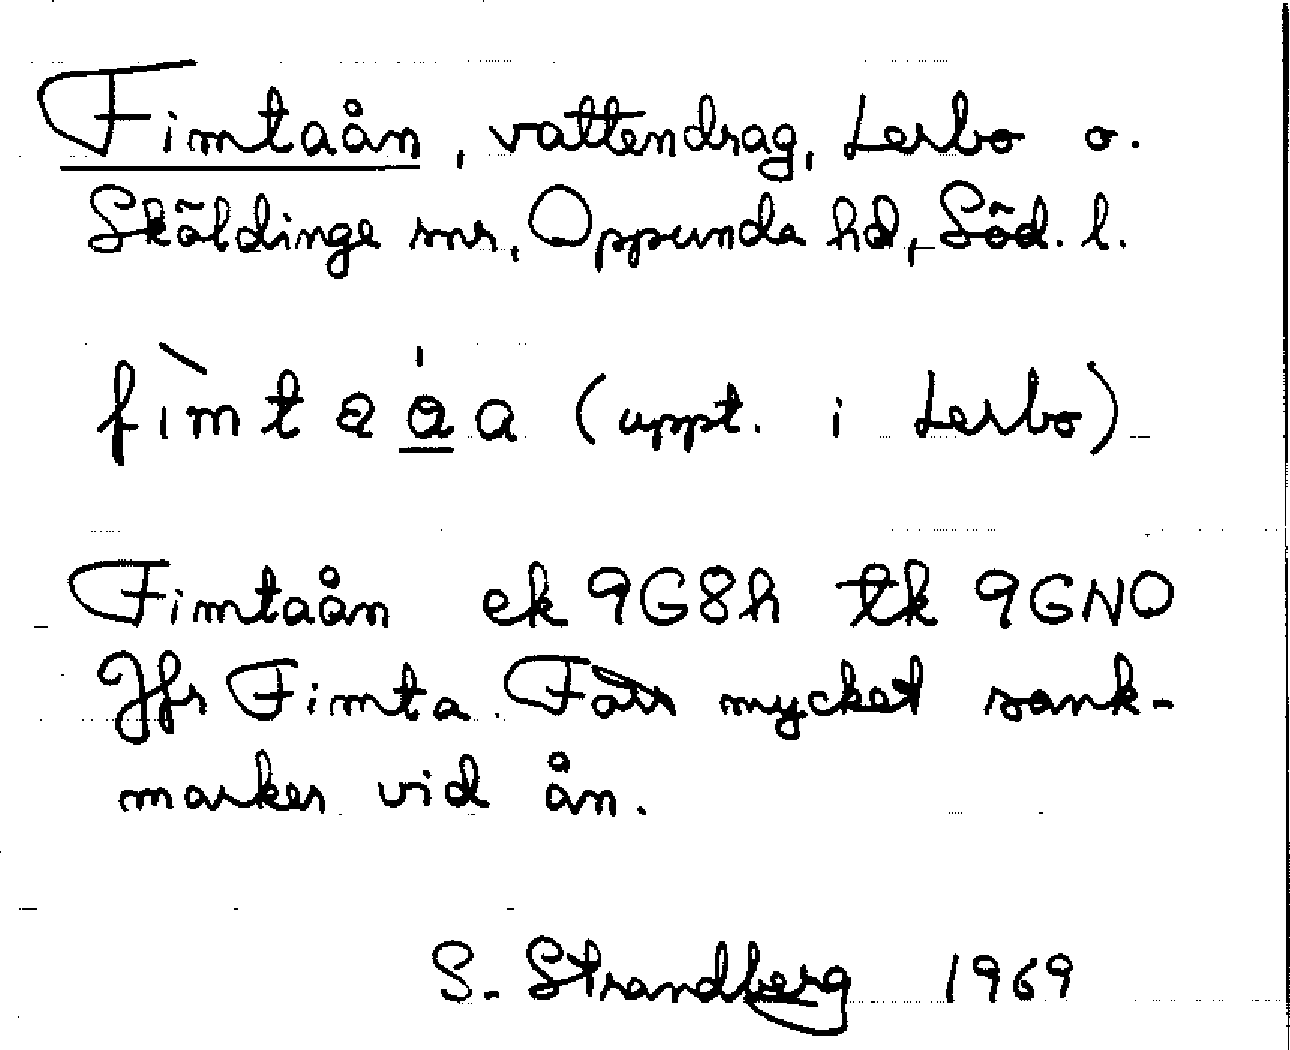 Fimtaån, vattendrag, Lerbo o.
Sköldinge snr, Oppunda hd, Söd. l.
fìmtaạ̊a (uppt. i Lerbo)
Fimtaån ek 9G8h tk 9GNO
Jfr Fimta. Förr mycket sank-
marker vid ån.
S. Strandberg 1969